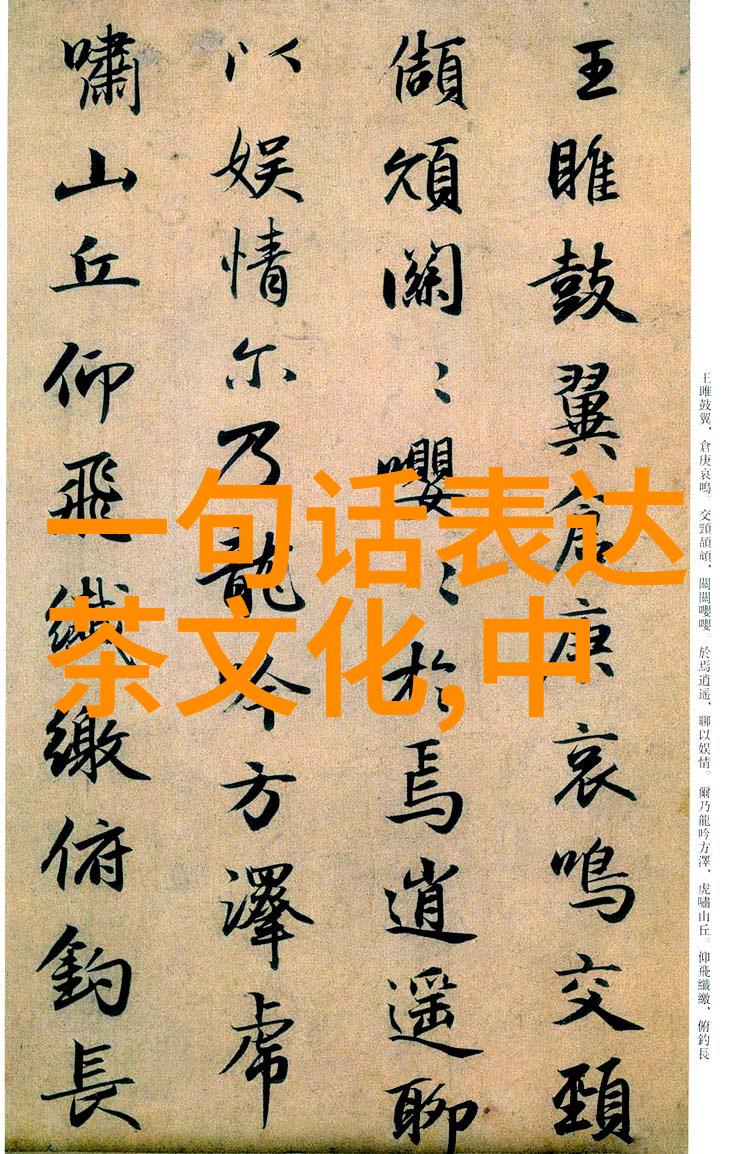 王雎鼓翼倉庚哀鳴交頸
頡頏關〻嚶〻於焉逍遥聊
以娱情尓乃龍吟方澤虎
嘯山丘仰飛纖繳俯釣長
一句话表达
茶文化,中
王雎鼓翼、倉庚哀鳴。交頸頡頏、關關嚶嚶。於焉逍遥、聊以娱情。爾乃龍吟方澤、虎嘯山丘。仰飛纖繳、俯釣長